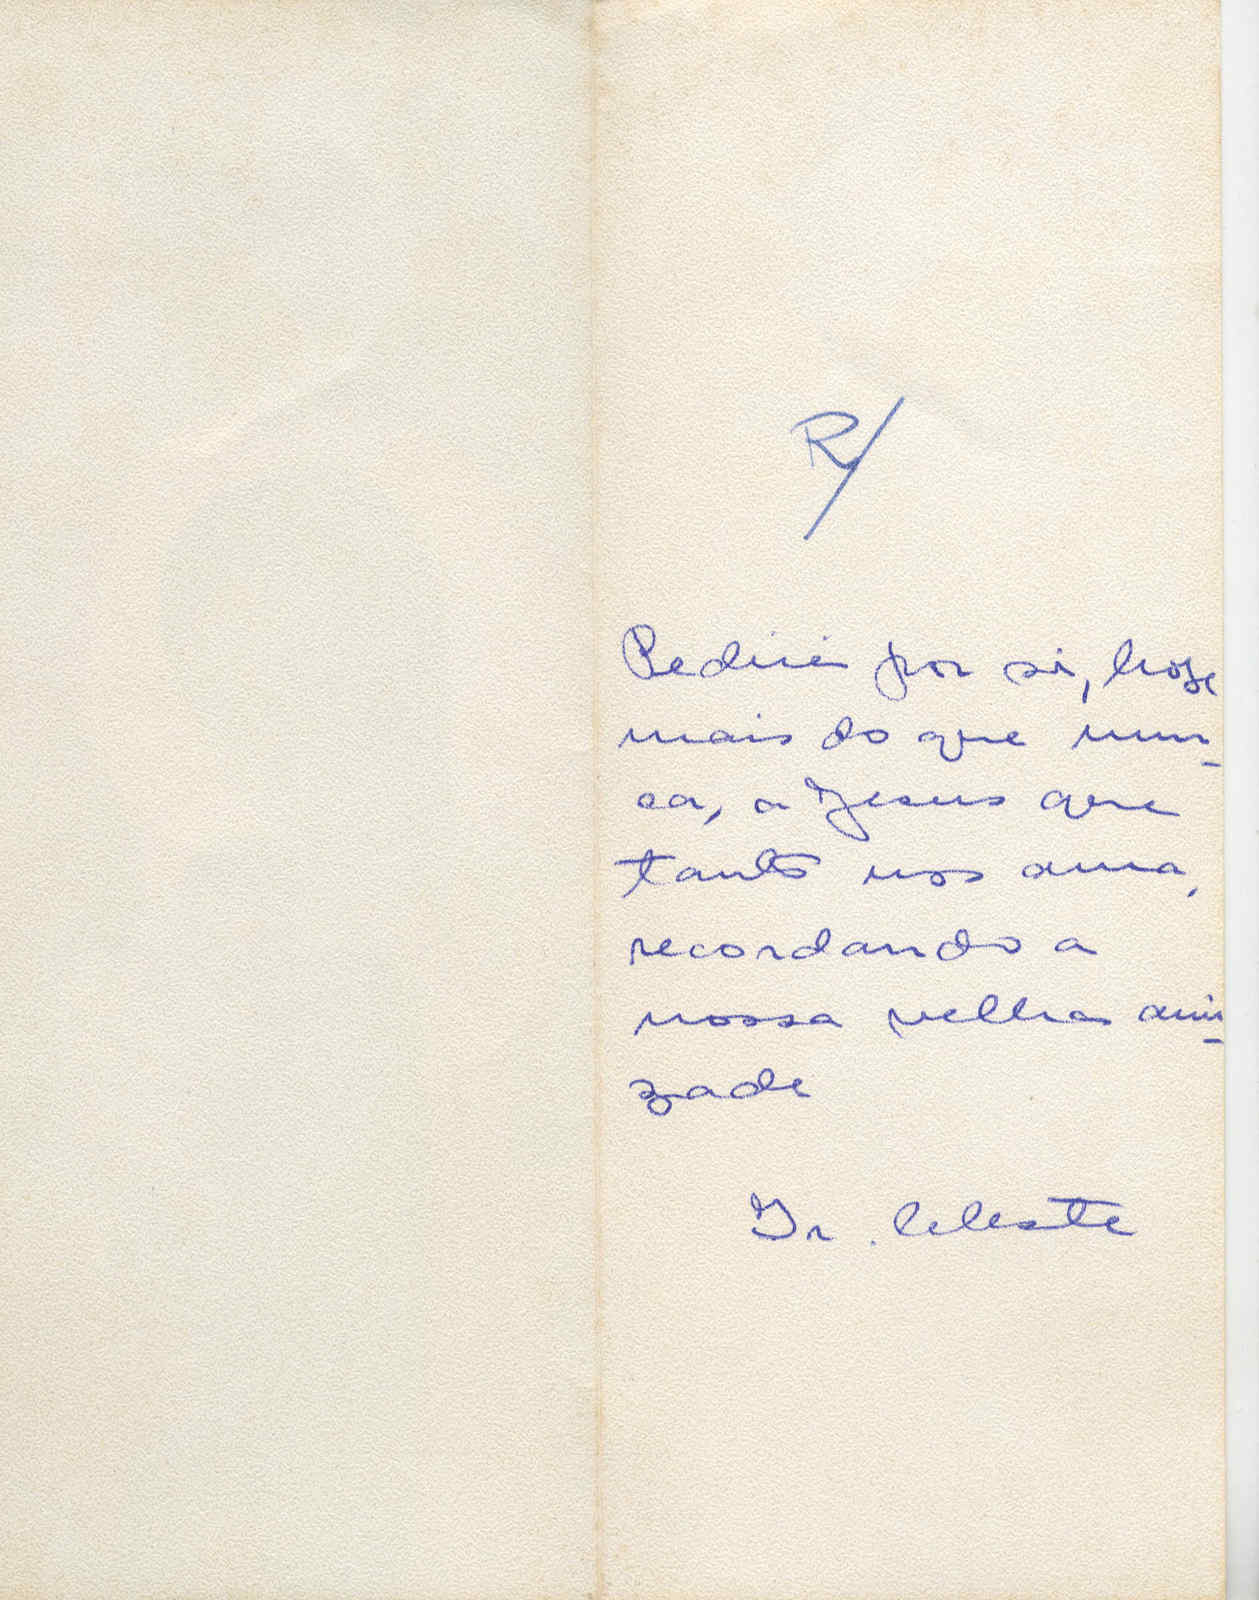 R/
Pedirei por si, hoje
mais do que nun-
ca, a Jesus que
tanto nos ama,
recordando a
nossa velha ami-
zade
Ir. Celeste